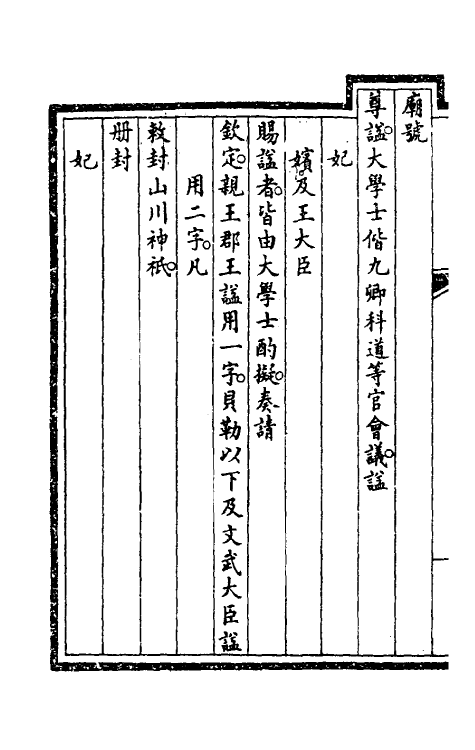 廟號
尊諡大學士偕九卿科道等官會議諡
妃
嬪及王大臣
賜諡者皆由大學士酌擬奏請
欽定親王郡王諡用一字貝勒以下及文武大臣諡
用二字凡
敕封山川神祇
册封
妃